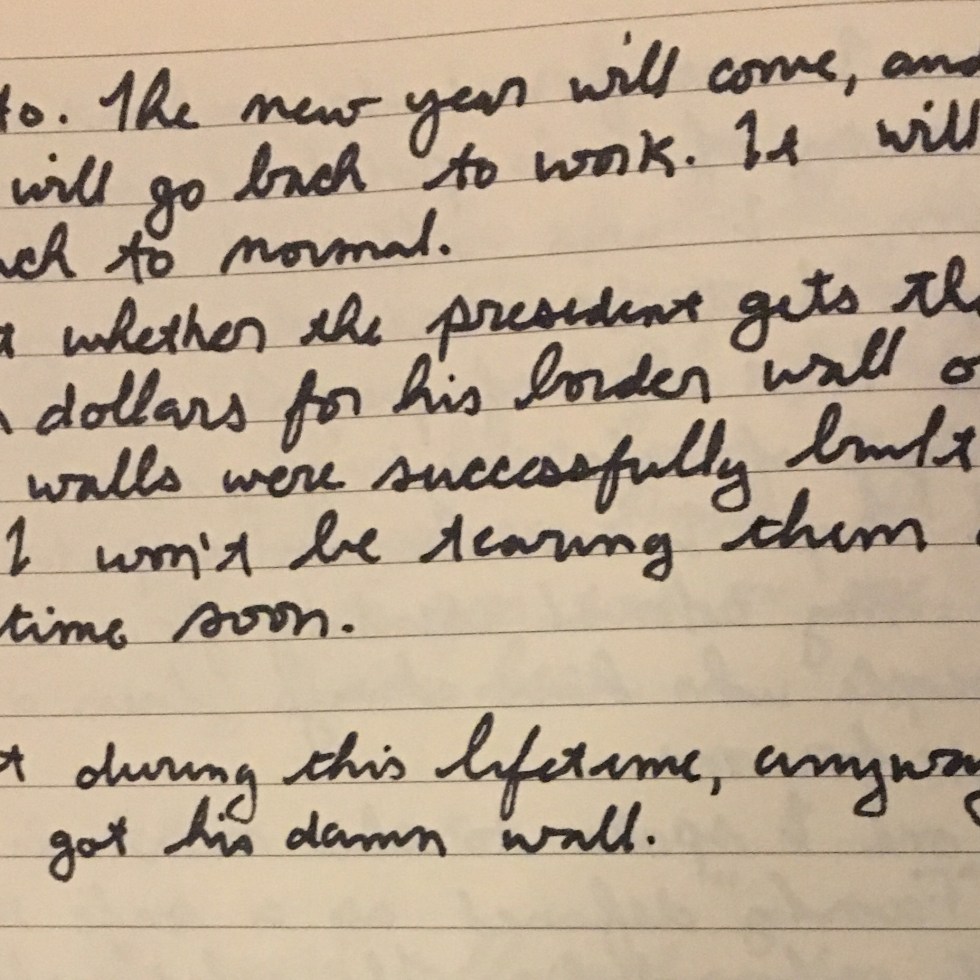 to. The new year will come, and
will go back to work. It will
ack to normal.
t whether the president gets th
n dollars for his border wall o
walls were successfully built
I won't be tearing them
time soon.
t during this lifetime, anyway
got his damn wall.